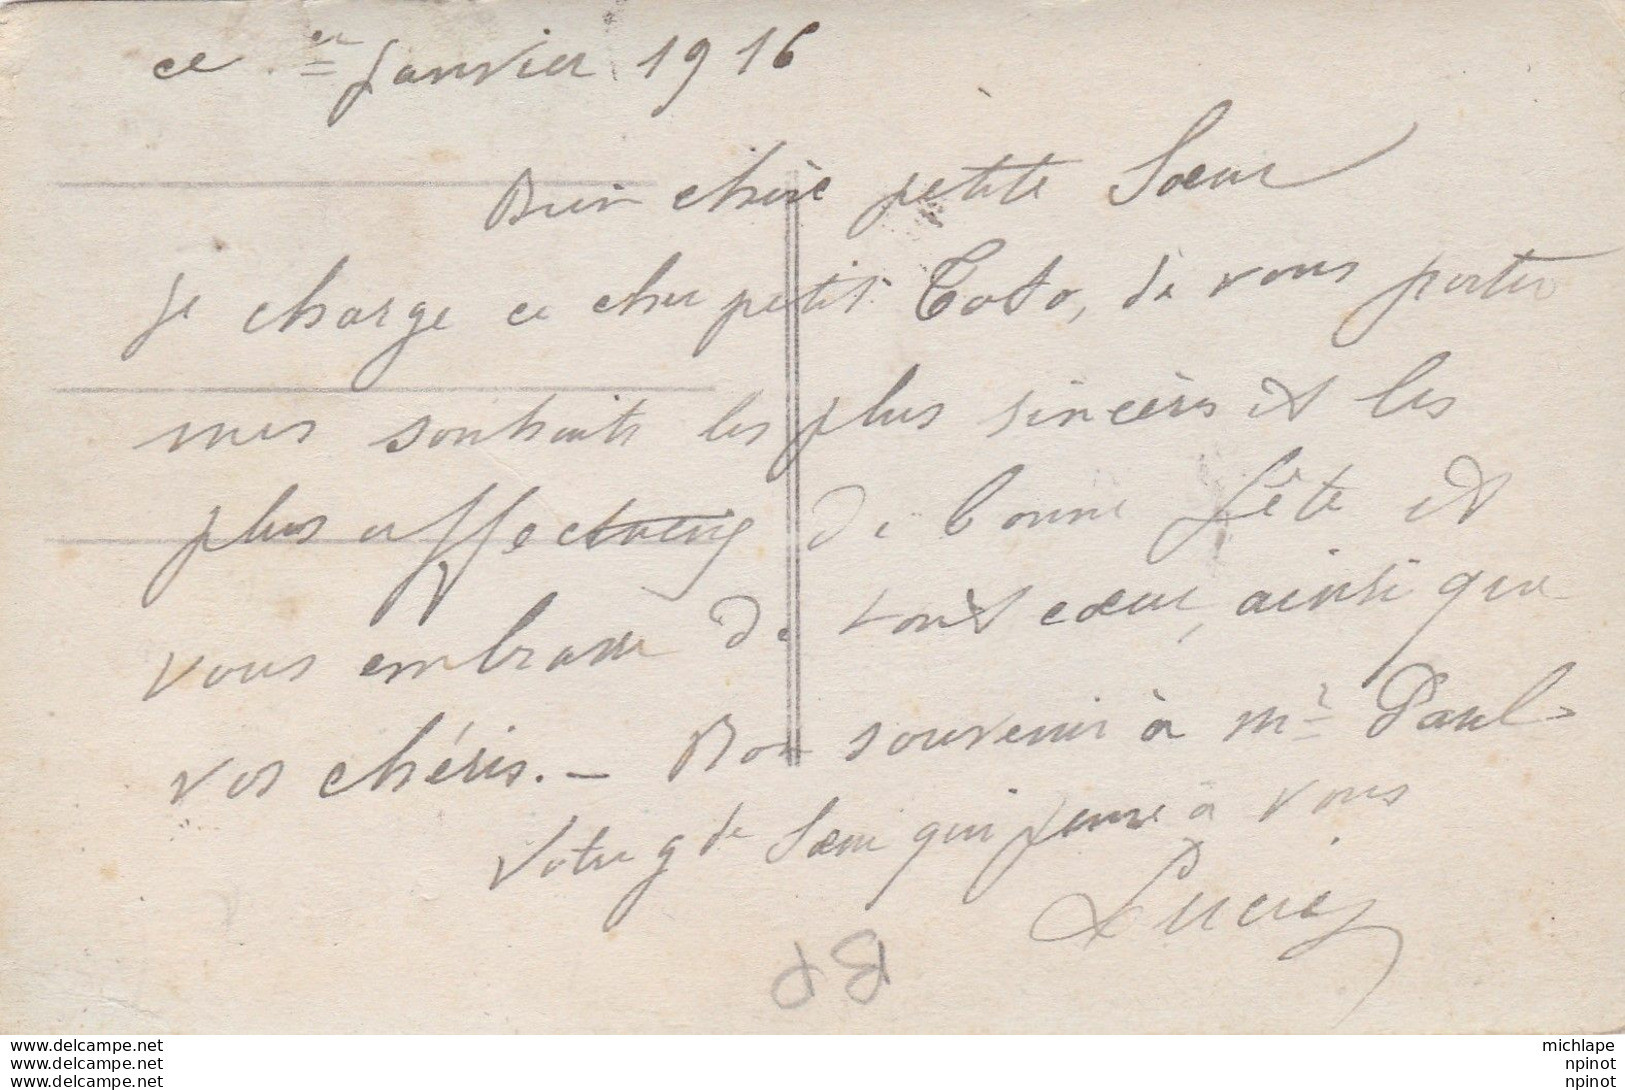 ce 1er Janvier 1916
Bien chère petite Sœur
Je charge ce cher petit Toto, de vous porter
mes souhaits les plus sincères et les
plus affectueux de bonne fête et
vous embrasse de tout cœur, ainsi que
vos chéris. — Bon souvenir à Mr Paul
Votre gde Sœur qui pense à vous
Lucie
www.delcampe.net
www.delcampe.net
www.delcampe.net
michlape
npinot
npinot